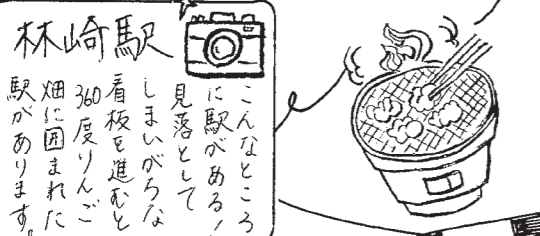 林崎駅
こんなところ
に駅がある！
見落として
しまいがちな
看板を進むと
360度りんご
畑に囲まれた
駅があります。